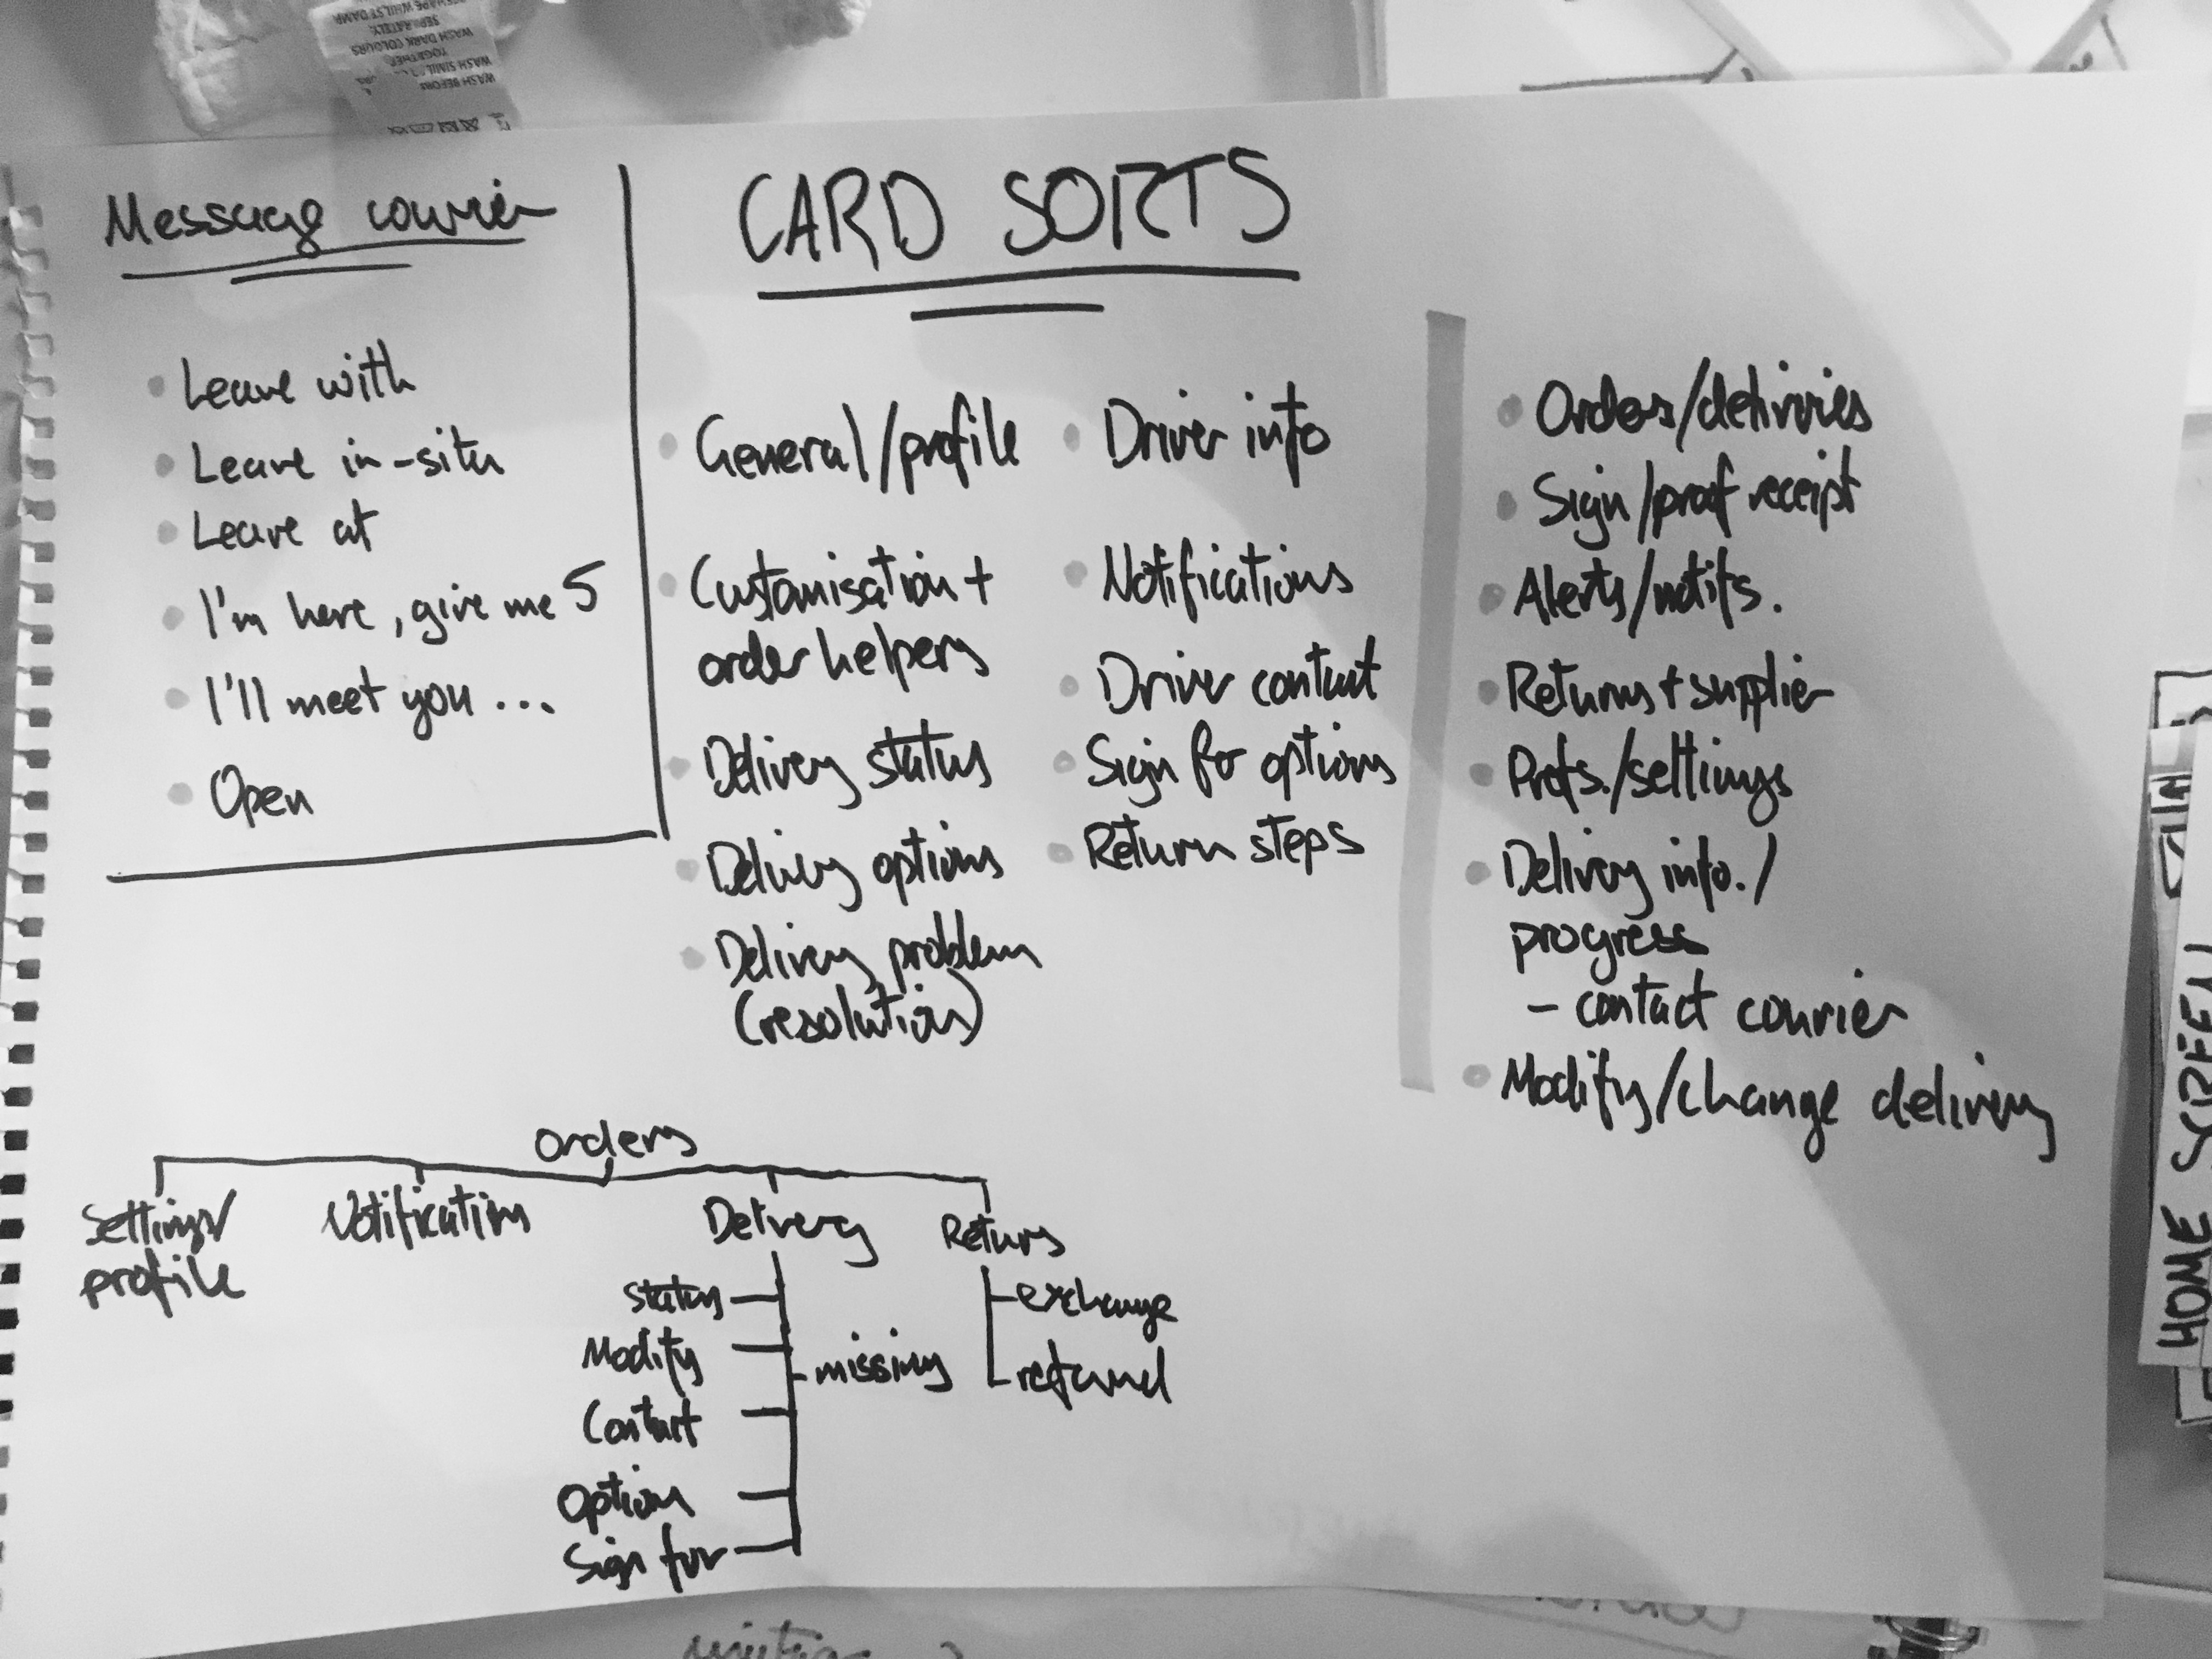 WASH BEFORE
WASH SIMIL
TOGETHER
WASH DARK COLOURS
SEPARATELY.
WHILST DAMP
Message courier
• Leave with
• Leave in-situ
• Leave at
• I'm here, give me 5
• I'll meet you ...
• Open
CARD SORTS
• General/profile
• Customisation +
order helpers
• Delivery status
• Delivery options
• Delivery problem
(resolution)
• Driver info
• Notifications
• Driver contact
• Sign for options
• Return steps
• Orders/deliveries
• Sign/proof receipt
• Alerts/notifs.
• Returns + supplier
• Prefs./settings
• Delivery info./
progress
- contact courier
• Modify/change delivery
orders
Settings/
profile
Notification
Delivery
Returs
status
Modify
Contact
Option
Sign for
missing
exchange
refund
HOME SCREEN